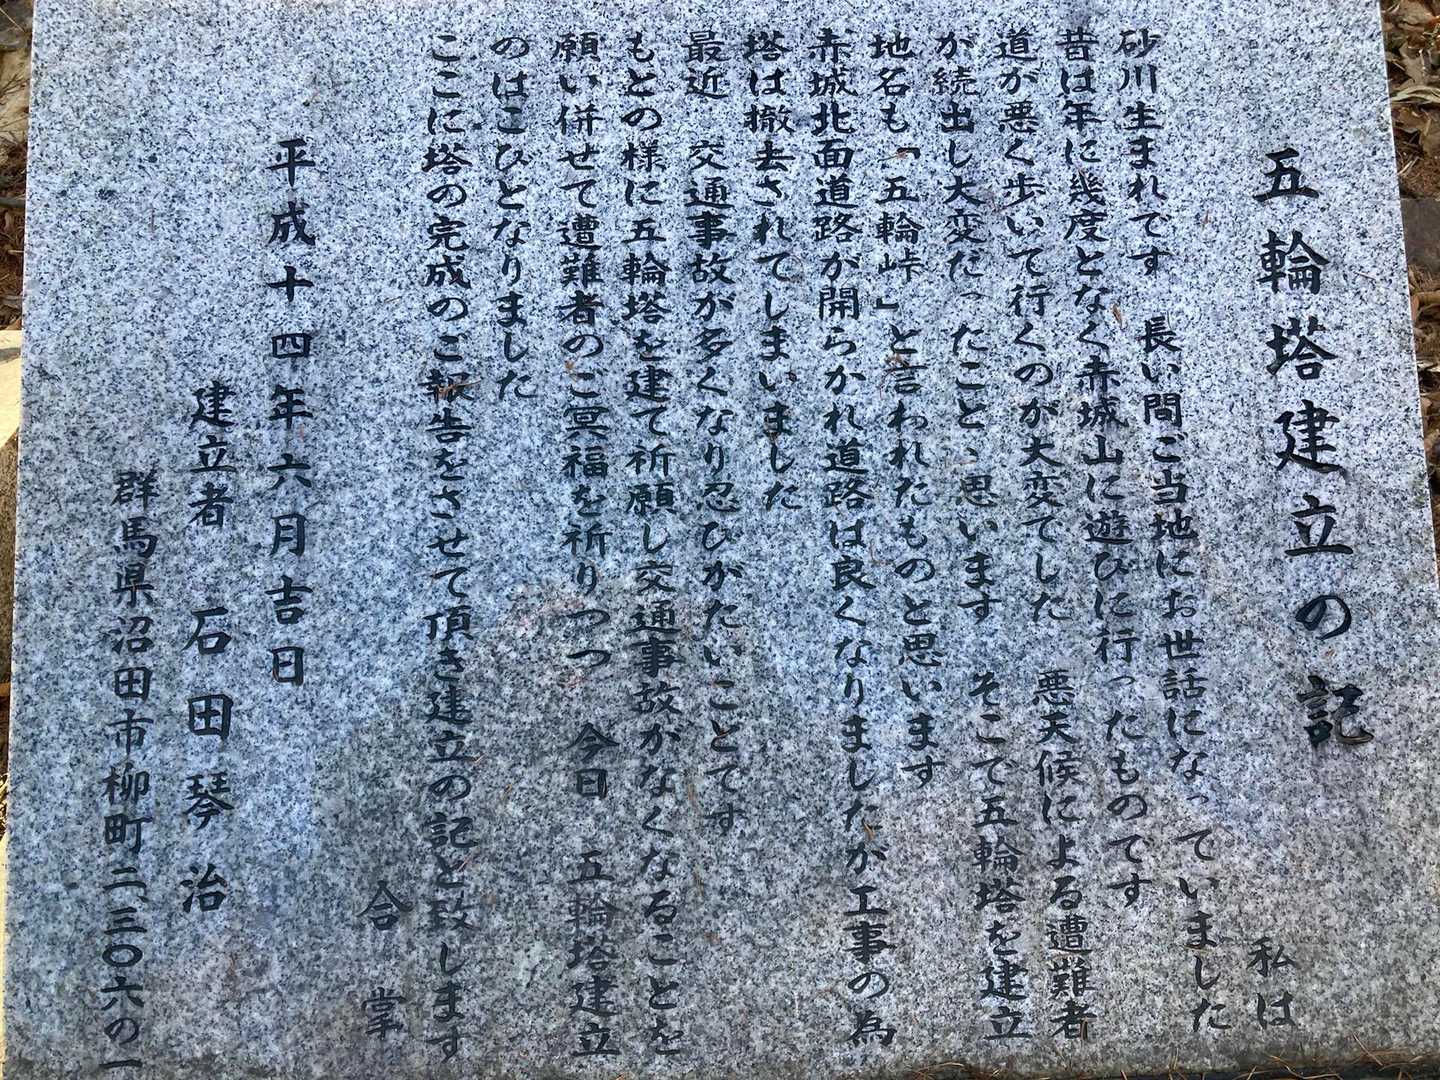 五輪塔建立の記
私は
砂川生まれです 長い間ご当地にお世話になっていました
昔は年に幾度となく赤城山に遊びに行ったものです
道が悪く歩いて行くのが大変でした 悪天候による遭難者
が続出し大変だったこと、思います そこで五輪塔を建立
地名も「五輪峠」と言われたものと思います
赤城北面道路が開らかれ道路は良くなりましたが工事の為
塔は撤去されてしまいました
最近 交通事故が多くなり忍びがたいことです
もとの様に五輪塔を建て祈願し交通事故がなくなることを
願い併せて遭難者のご冥福を祈りつつ 今日 五輪塔建立
のはこびとなりました
ここに塔の完成のご報告をさせて頂き建立の記と致します
合掌
平成十四年六月吉日
建立者 石田琴治
群馬県沼田市柳町二、三〇六の一